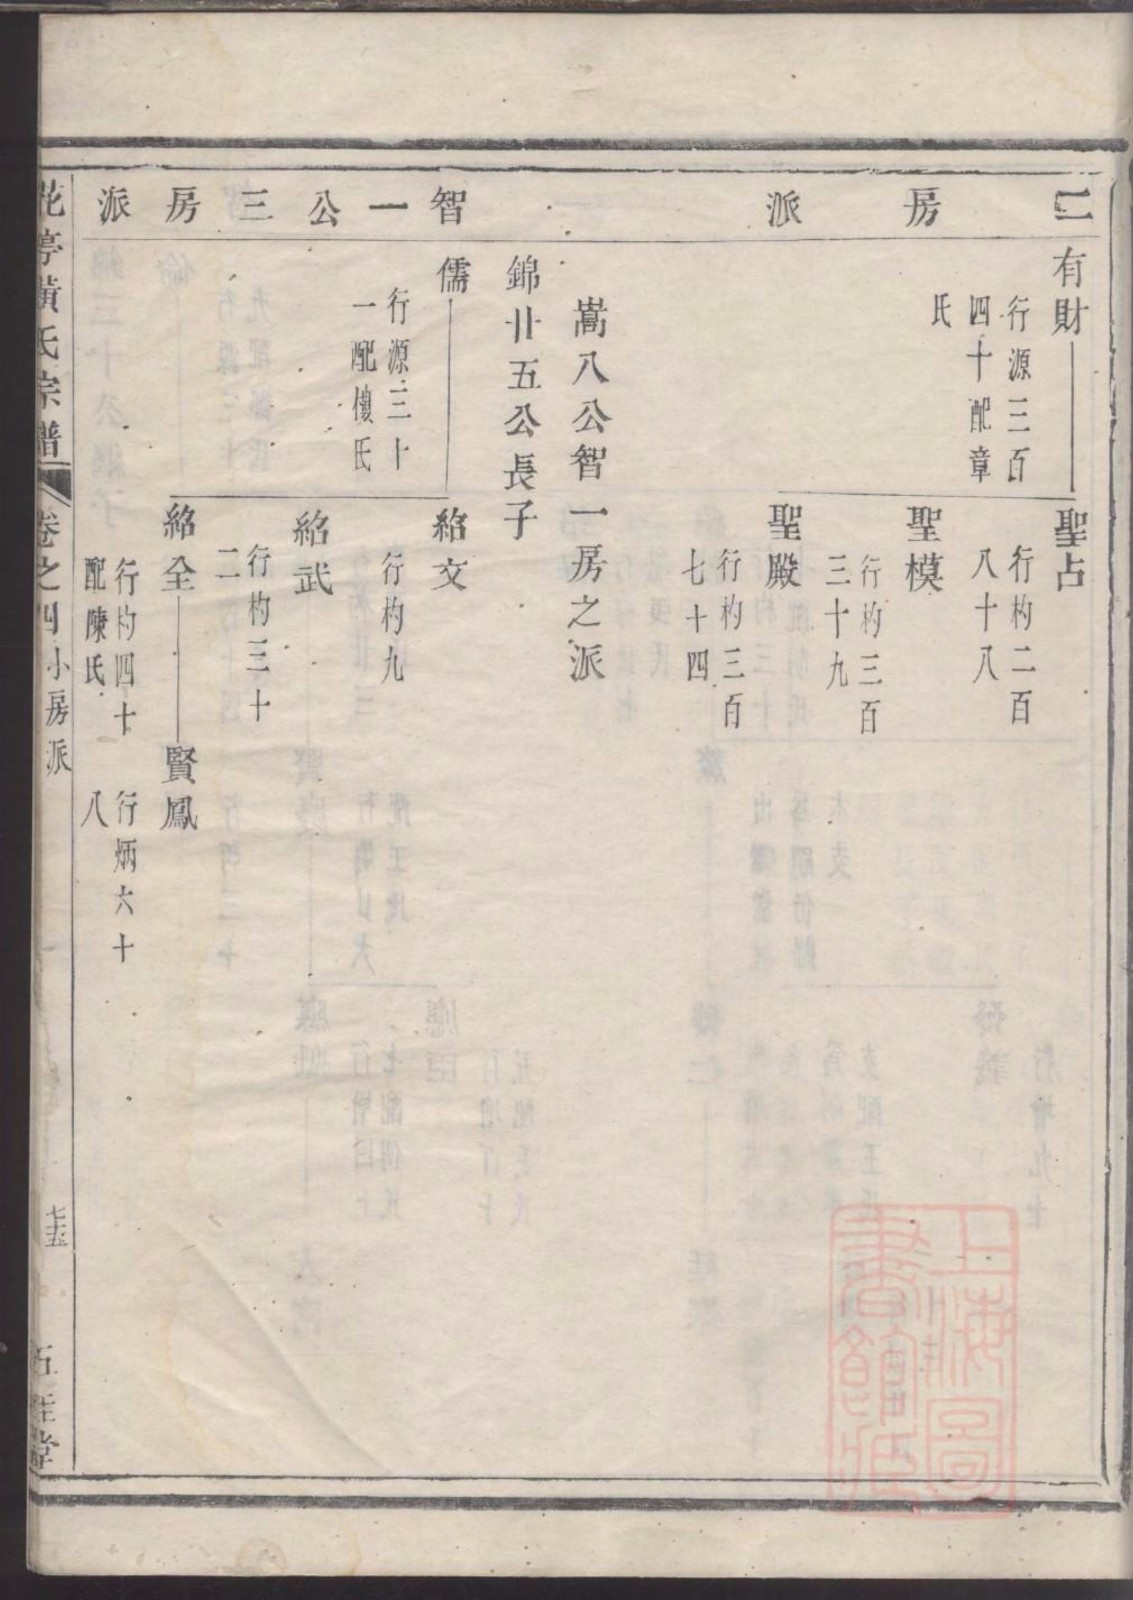 二房派
有財
行源三百
四十配章
氏
聖占
行杓二百
八十八
聖模
行杓三百
三十九
聖殿
行杓三百
七十四
嵩八公智一房之派
錦廿五公長子
智一公三房派
儒
行源三十
一配儂氏
紹文
行杓九
紹武
行杓三十
二
紹全
行杓四十
配陳氏
賢鳳
行炳六十
八
花亭黃氏宗譜
卷之四
小房派
七十五
五桂堂
上海圖
書館藏